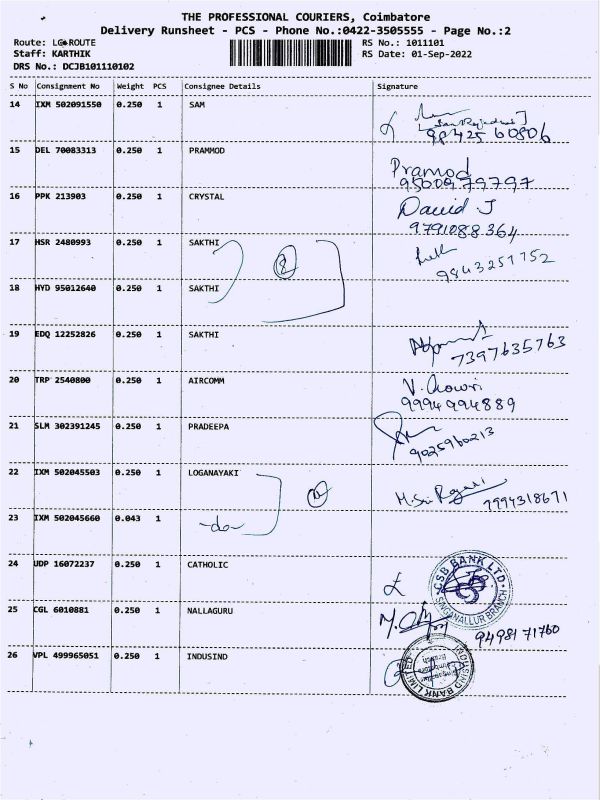 THE PROFESSIONAL COURIERS, Coimbatore
Delivery Runsheet - PCS - Phone No.:0422-3505555 - Page No.:2
Route: LC ROUTE RS No.: 1011101
Staff: KARTHIK RS Date: 01-Sep-2022
DRS No.: DCJB101110102
S No Consignment No Weight PCS Consignee Details Signature
14 IXM 502091550 0.250 1 SAM
98425 60806
15 DEL 70083313 0.250 1 PRAMMOD Pramod
9500979797
16 PPK 213903 0.250 1 CRYSTAL David J
9791088364
17 HSR 2480993 0.250 1 SAKTHI
9843251752
18 HYD 95012640 0.250 1 SAKTHI
19 EDQ 12252826 0.250 1 SAKTHI
7397635763
20 TRP 2540800 0.250 1 AIRCOMM V. Gowri
9994994889
21 SLM 302391245 0.250 1 PRADEEPA
9025960213
22 IXM 502045503 0.250 1 LOGANAYAKI M. Sri
7994318671
23 IXM 502045660 0.043 1 -do-
24 UDP 16072237 0.250 1 CATHOLIC
CSB BANK LTD.
SINGANALLUR BRANCH
25 CGL 6010881 0.250 1 NALLAGURU
9498171760
26 VPL 499965051 0.250 1 INDUSIND
INDUSIND BANK LIMITED
Singanallur
Coimbatore
Branch